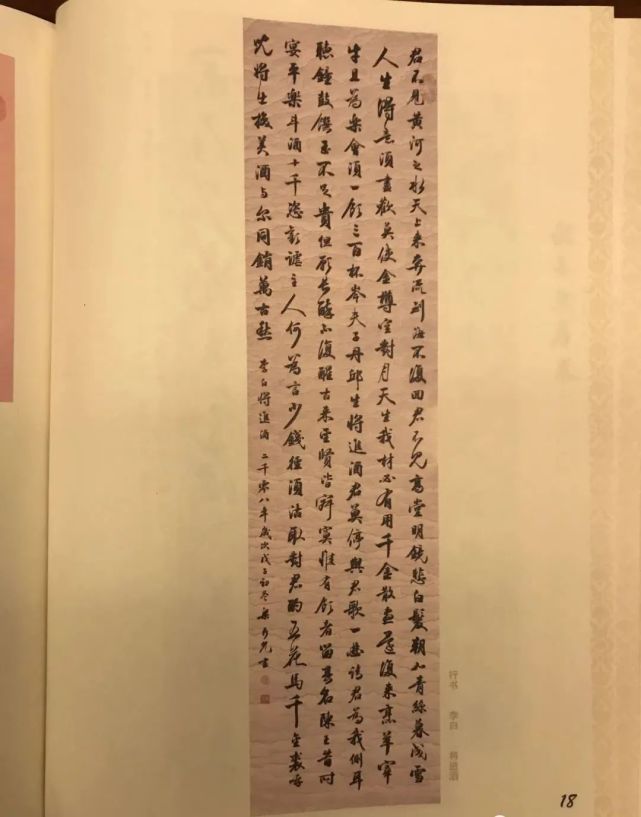 君不见黄河之水天上来奔流到海不復回君不见高堂明镜悲白髮朝如青絲暮成雪
人生得意须盡歡莫使金樽空對月天生我材必有用千金散盡還復来烹羊宰
牛且为樂會须一飲三百杯岑夫子丹邱生将進酒君莫停與君歌一曲請君为我側耳
聽鐘鼓饌玉不足貴但願長醉不復醒古来聖賢皆寂寞惟有飲者留其名陳王昔时
宴平樂斗酒十千恣歡謔主人何为言少錢徑须沽取對君酌五花馬千金裘呼
兒将出换美酒与尔同銷萬古愁
李白将進酒 二千零八年歲次戊子初冬
行书 李白 将进酒
18